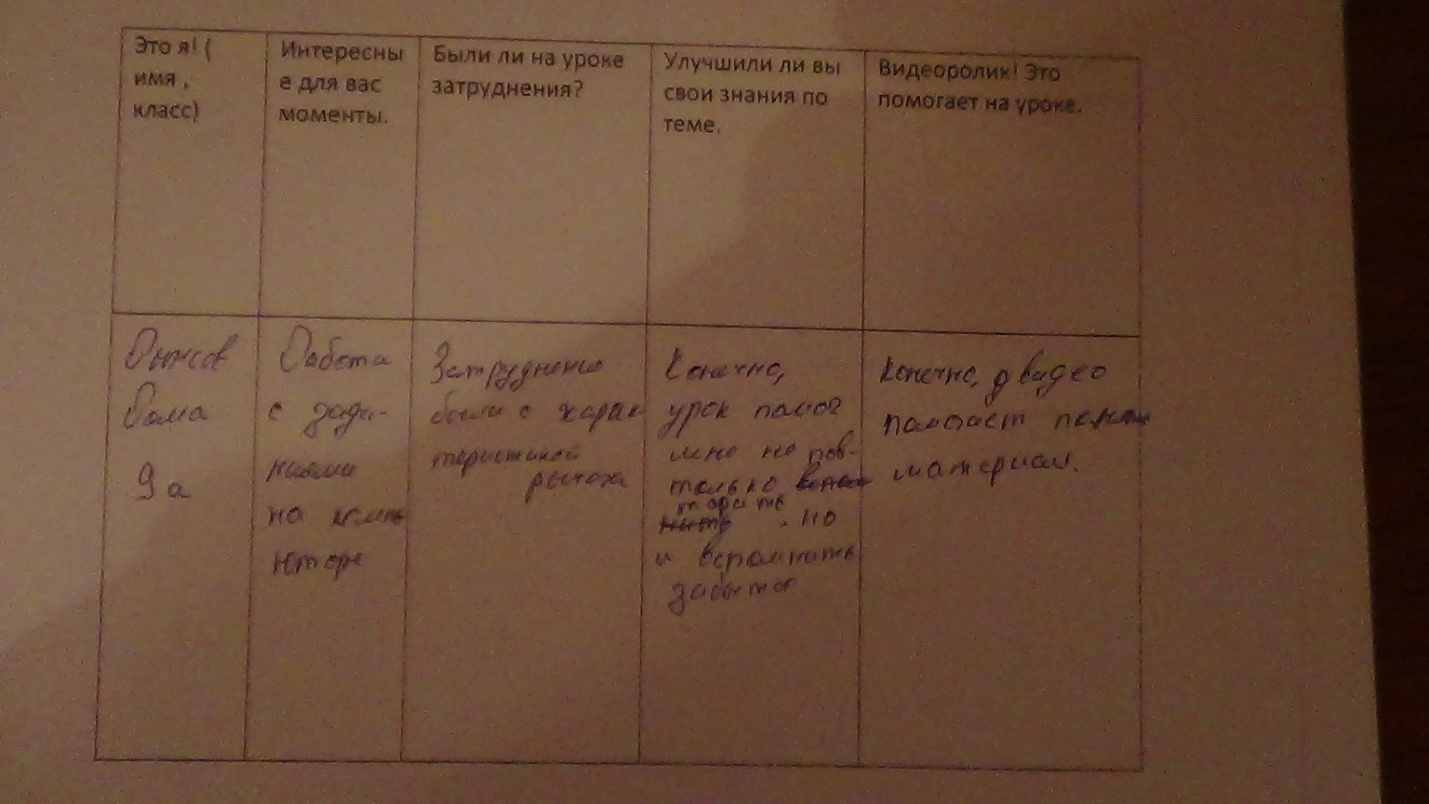 Это я! (
имя ,
класс)
Интересны
е для вас
моменты.
Были ли на уроке
затруднения?
Улучшили ли вы
свои знания по
теме.
Видеоролик! Это
помогает на уроке.
Рома
9 а
Работа
с зада-
ниями
на компь
ютере
Затруднение
были с харак
теристикой
рычага
Конечно,
урок помог
мне не пов-
только
торить но
и вспомнить
забытое
Конечно, видео
помогает
материал.